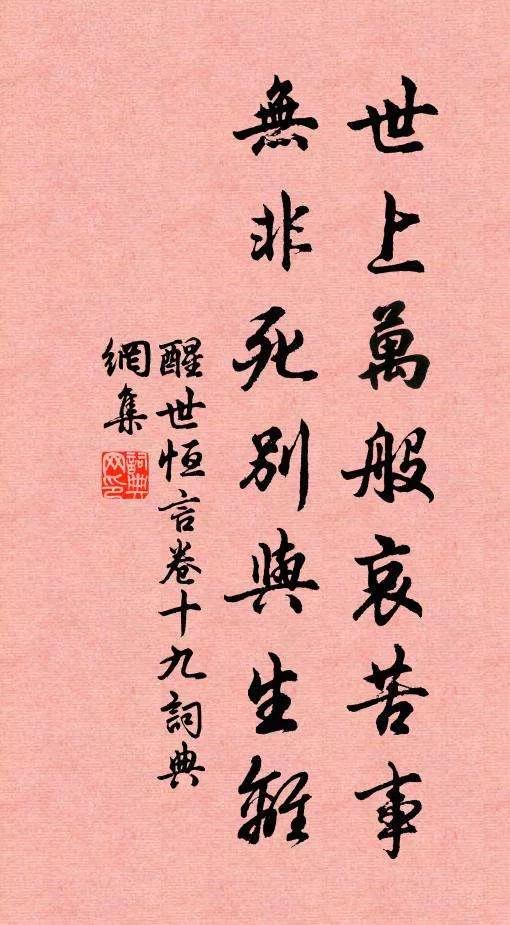 世上萬般哀苦事
無非死別與生離
醒世恒言卷十九詞典
網集